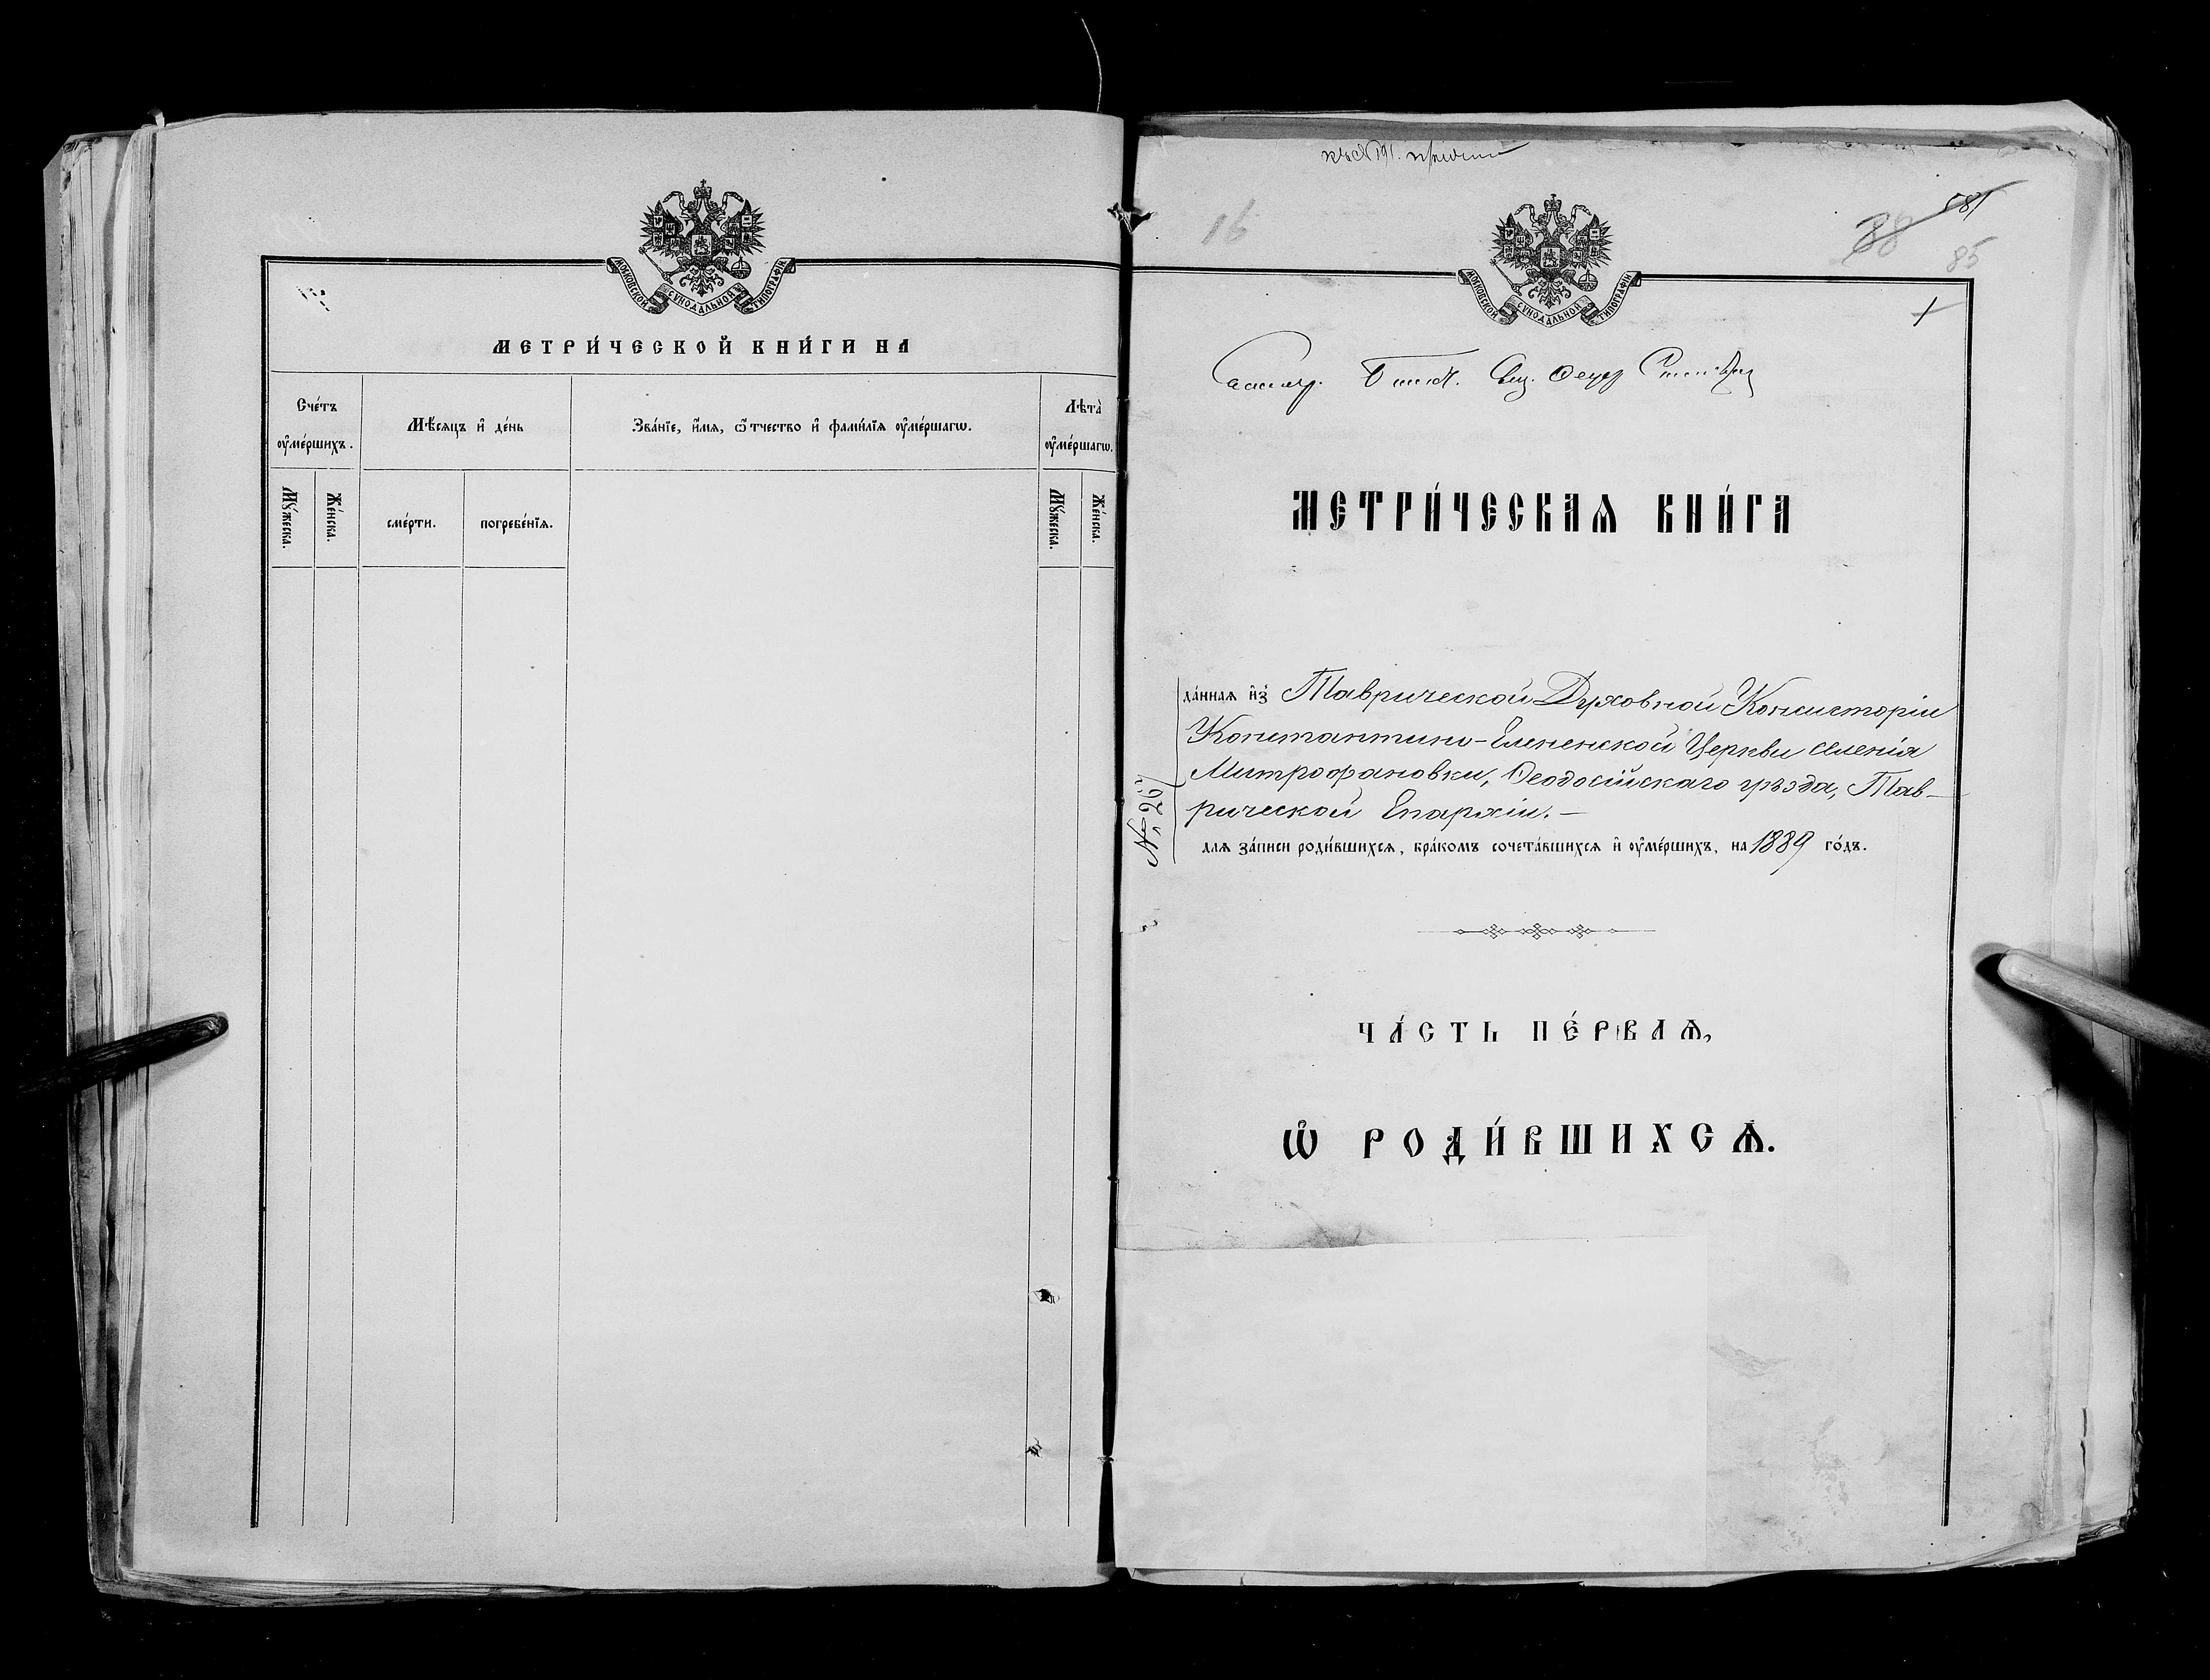 МОСКОВСКОЙ СѴНОДАЛЬНОЙ ТИПОГРАФІИ
МЕТРИ́ЧЕСКОЙ КНИ́ГИ НА
Сче́тъ ᲂу҆ме́ршихъ.
Мѣ́сяцъ и҆ де́нь
Зва́нїе, и҆́мѧ, ѻ҆́тчество и҆ фами́лїѧ ᲂу҆ме́ршагѡ.
Лѣта̀ ᲂу҆ме́ршагѡ.
Мꙋ́жеска.
Же́нска.
сме́рти.
погребе́нїѧ.
Мꙋ́жеска.
Же́нска.
16
88
581
85
МОСКОВСКОЙ СѴНОДАЛЬНОЙ ТИПОГРАФІИ
1
МЕТРИ́ЧЕСКАѦ КНИ́ГА
да́ннаѧ и҆з̾ Таврической Духовной Консисторіи
Константино-Елененской Церкви селенія
Митрофановки, Ѳеодосійскаго уѣзда, Тав-
рической Епархіи.—
длѧ за́писи роди́вшихсѧ, бра́комъ сочета́вшихсѧ и҆ ᲂу҆ме́ршихъ, на 1889 го́дъ.
ЧА́СТЬ ПЕ́РВАѦ,
Ѡ҆ РОДИ́ВШИХСѦ.